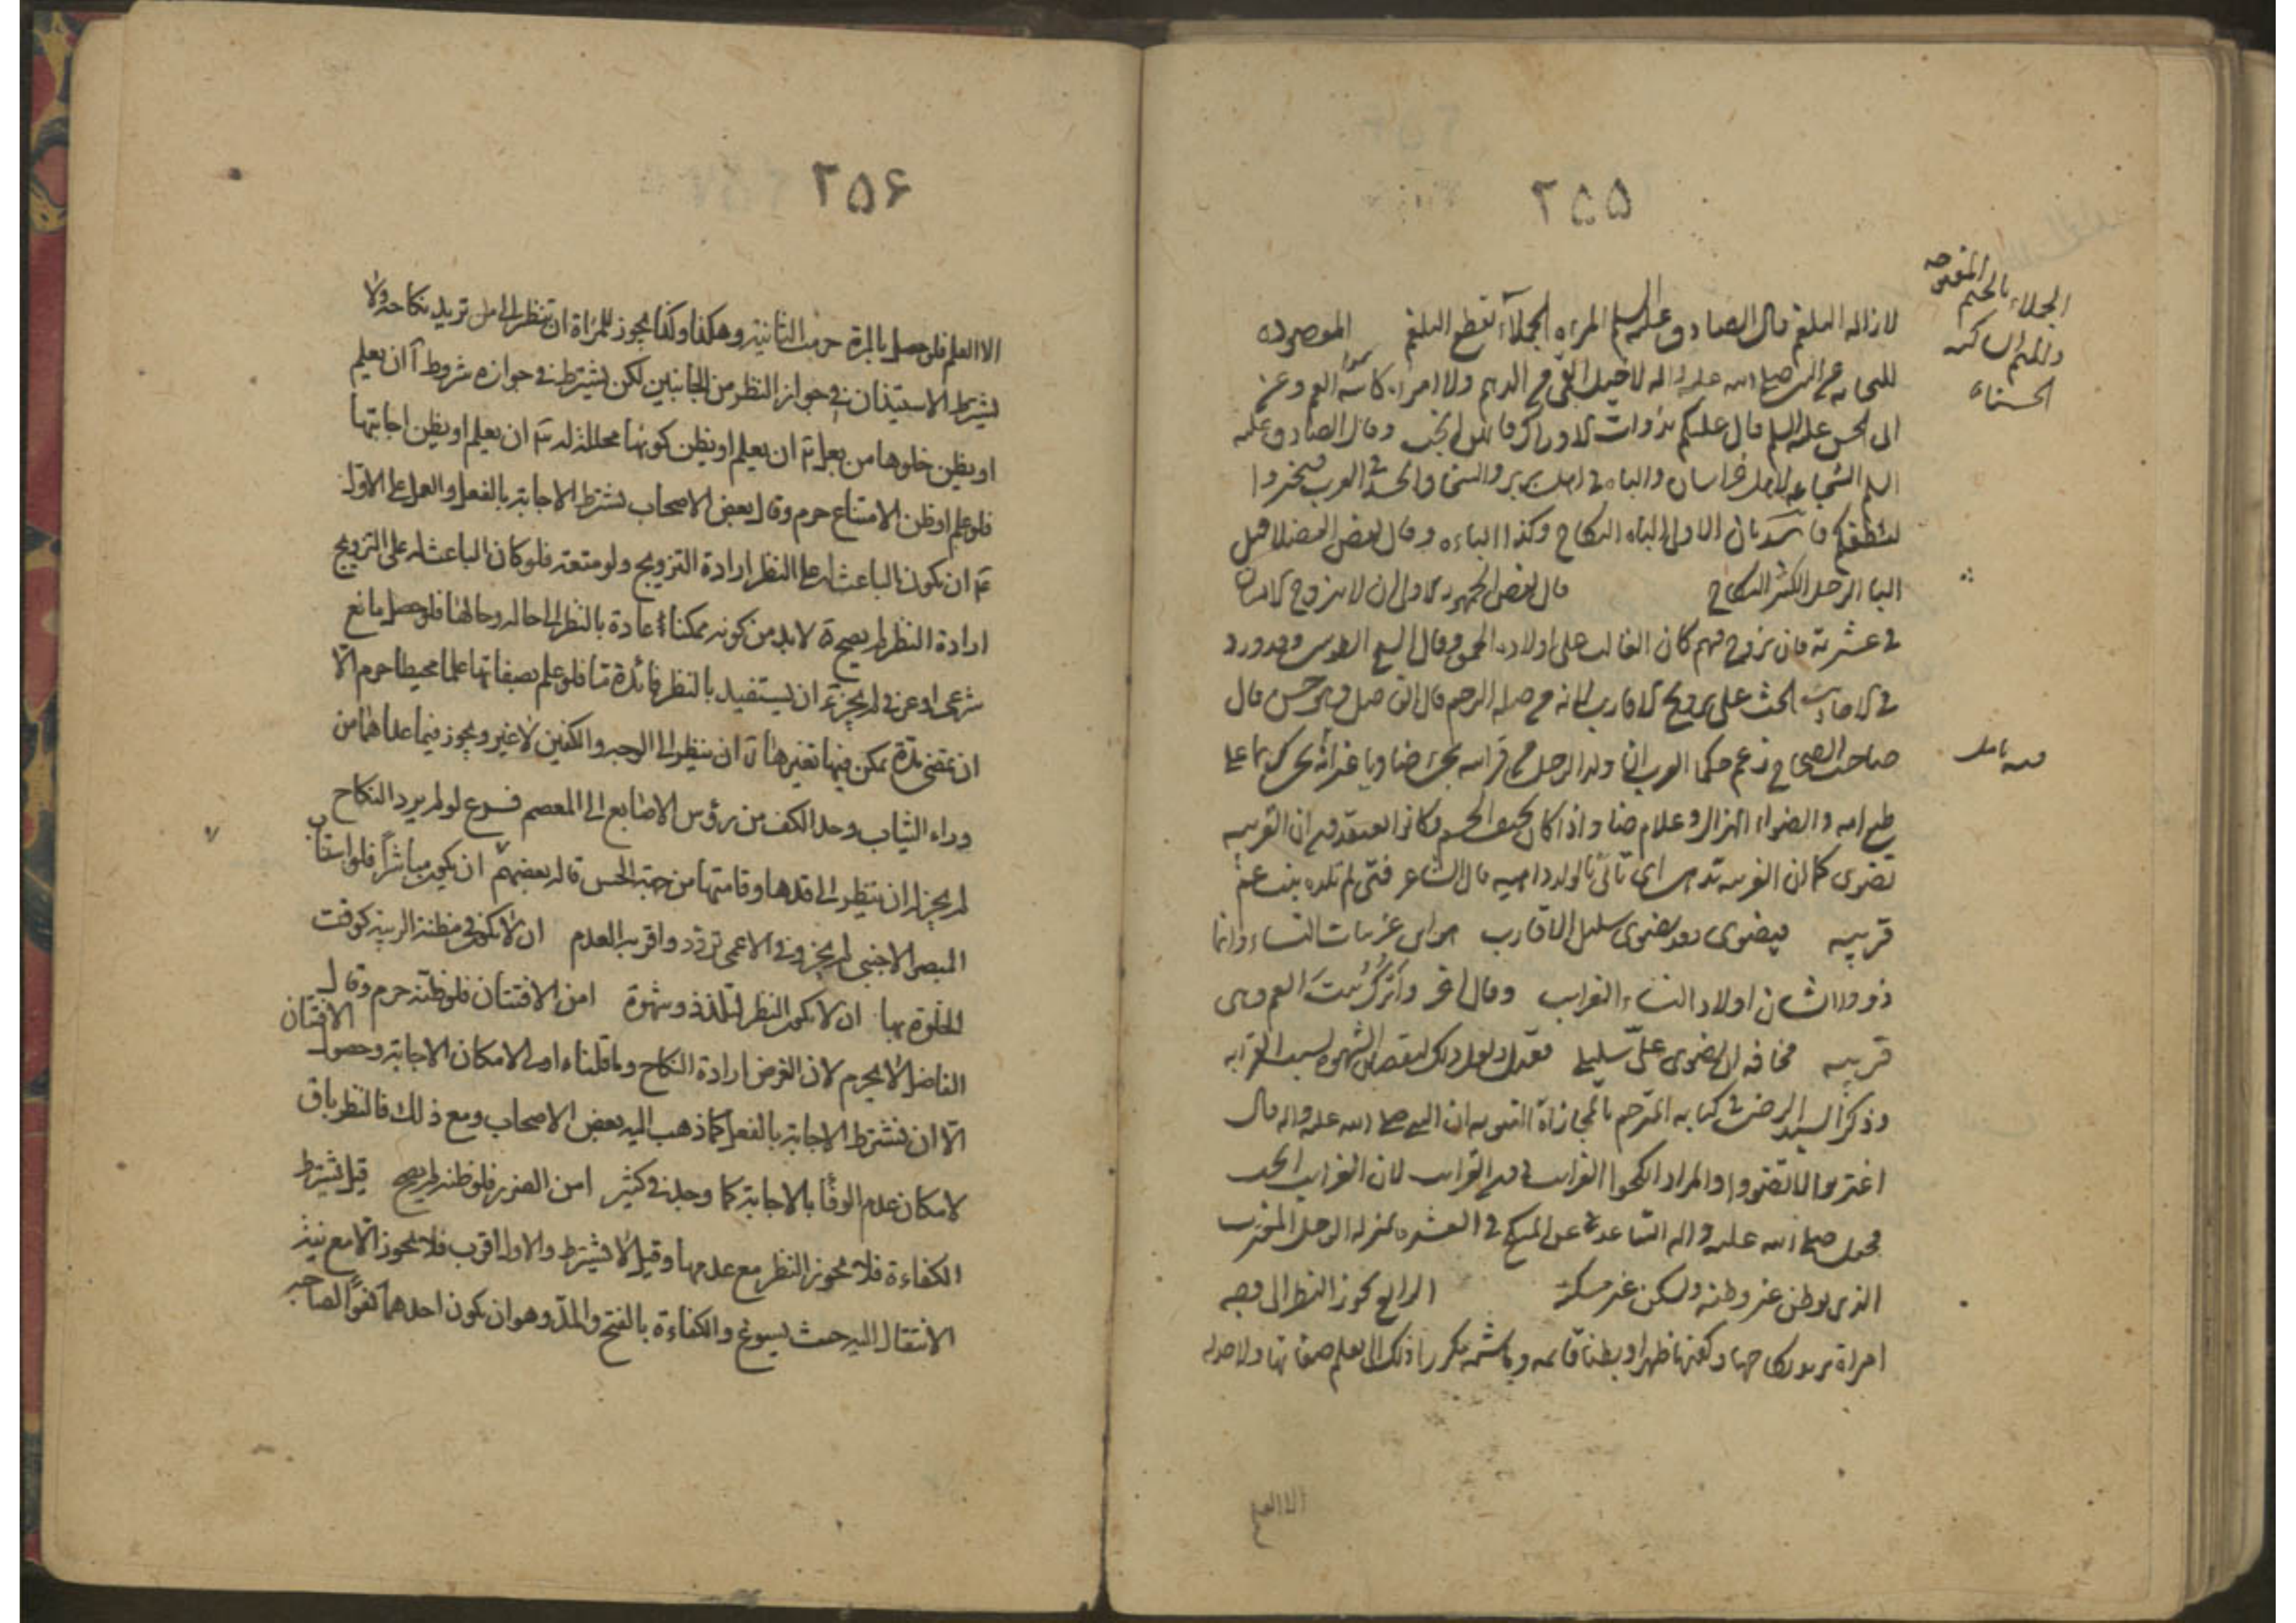 ٢٥٥
الجملاء بالجيم المفتوحه
والميم الساكنه
الحسناء
لازاله البلغم قال الصادق عليه السلم المراه الجملآء تقطع البلغم
للنجابه عن النبي صلى الله عليه واله
ابى الحسن عليه السلم قال عليكم بذوات الاوراك فانهن انجب وقال الصادق عليه
السلم الشجاعه لاهل خراسان والباه فى اهل بربر والسخا والحسد فى العرب فتخيروا
لنطفكم الباه النكاح وكذا الباءه وقال بعض الفضلا قيل
البا الرجل الكثير النكاح قال بعض الجمهور الاولى ان لا يتزوج الانسان
فى عشيرته فان تزوج فيهم كان الغالب على اولاده الحمق وقال الشيخ الطوسى وقد ورد
فى الاحاديث الحث على تزويج الاقارب لما فيه من صله الرحم قال الفاضل وهو حسن قال
صاحب الصحاح تزعم حكما العرب ان ولد الرجل من قرابته يجئ ضاويا غير انه يجئ كريما على
فيه تامل
طبع امه والضوا الهزال وغلام ضاو اذا كان نحيف الجسم وكانوا يعتقدون ان القريبه
تضوى كما ان الغريبه اى تاتى بالولد قال الشاعر فتى لم تلده بنت عم
قريبه فيضوى وقد يضوى سليل الاقارب هو ابن غريبات النساء وانما
ذوو الشان اولاد النساء الغرايب وقال اخر واترك بنت العم وهى
قريبه مخافه ان يضوى على سليلى ولعل ذلك لنقصان الشهوه بسبب القرابه
وذكر السيد الرضى فى كتابه المترجم بالمجازاة النبويه ان النبى صلى الله عليه واله قال
اغتربوا لا تضووا والمراد انكحوا الغرايب دون القرايب لان الغرايب انجب
فجعل صلى الله عليه واله التباعد عن المنكح فى العشيره بمنزله الرجل المغترب
الذى يوطن غير وطنه ويسكن غير مسكنه الرابع يجوز النظر الى وجه
امراة يريد نكاحها وكفيها ظهرا وبطنا قائمه وماشيه مكررا ذلك الى ان يعلم صفاتها ولا حد له
الا العلم
٢٥۶
الا العلم فلو حصل بالمرة حرمت الثانية وهكذا وكذا يجوز للمراة ان تنظر الى من تريد نكاحه ولا
يشترط الاستيذان فى جواز النظر من الجانبين لكن يشترط فى جوازه شروط آ ان يعلم
او يظن خلوها من بعل ب ان يعلم او يظن كونها محللة له ج ان يعلم او يظن اجابتها
فلو علم او ظن الامتناع حرم وقال بعض الاصحاب يشترط الاجابة بالفعل والعمل على الاول
د ان يكون الباعث له على النظر ارادة التزويج ولو متعة فلو كان الباعث له على التزويج
ارادة النظر لم يصح ه لابد من كونه ممكنا عادة بالنظر الى حاله وحالها فلو حصل مانع
شرعى او عرفى لم يجز و ان يستفيد بالنظر فائدة ما فلو علم بصفاتها علما محيطا حرم الا
ان تمضى مدة يمكن فيها تغيرها ز ان ينظر الى الوجه والكفين لا غير ويجوز فيما عداهما من
وراء الثياب وحد الكف من رؤس الاصابع الى المعصم فرع لو لم يرد النكاح
لم يجز له ان ينظر الى قدها وقامتها من جهة الحسن قاله بعضهم ان يكون مباشراً فلو استناب
البصير الاجنبى لم يجز وفى الاعمى تردد واقربه العدم ان لا يكون فى مظنة الريبة كوقت
الخلوة بها ان لا يكون النظر لتلذذ وشهوة امن الافتتان فلو ظنه حرم وقال
الفاضل لا يحرم لان الغرض ارادة النكاح وما قلناه اولى لامكان الاجابة وحصول الافتتان
الا ان نشترط الاجابة بالفعل كما ذهب اليه بعض الاصحاب ومع ذلك فالنظر باق
لامكان عدم الوفا بالاجابة كما وجد فى كثير امن الضرر فلو ظنه لم يصح قيل يشترط
الكفاءة فلا يجوز النظر مع عدمها وقيل لا يشترط والاول اقرب فلا يجوز الا مع نية
الانتقال اليه حيث يسوغ والكفاءة بالفتح والمد وهو ان يكون احدهما كفوًا لصاحبه